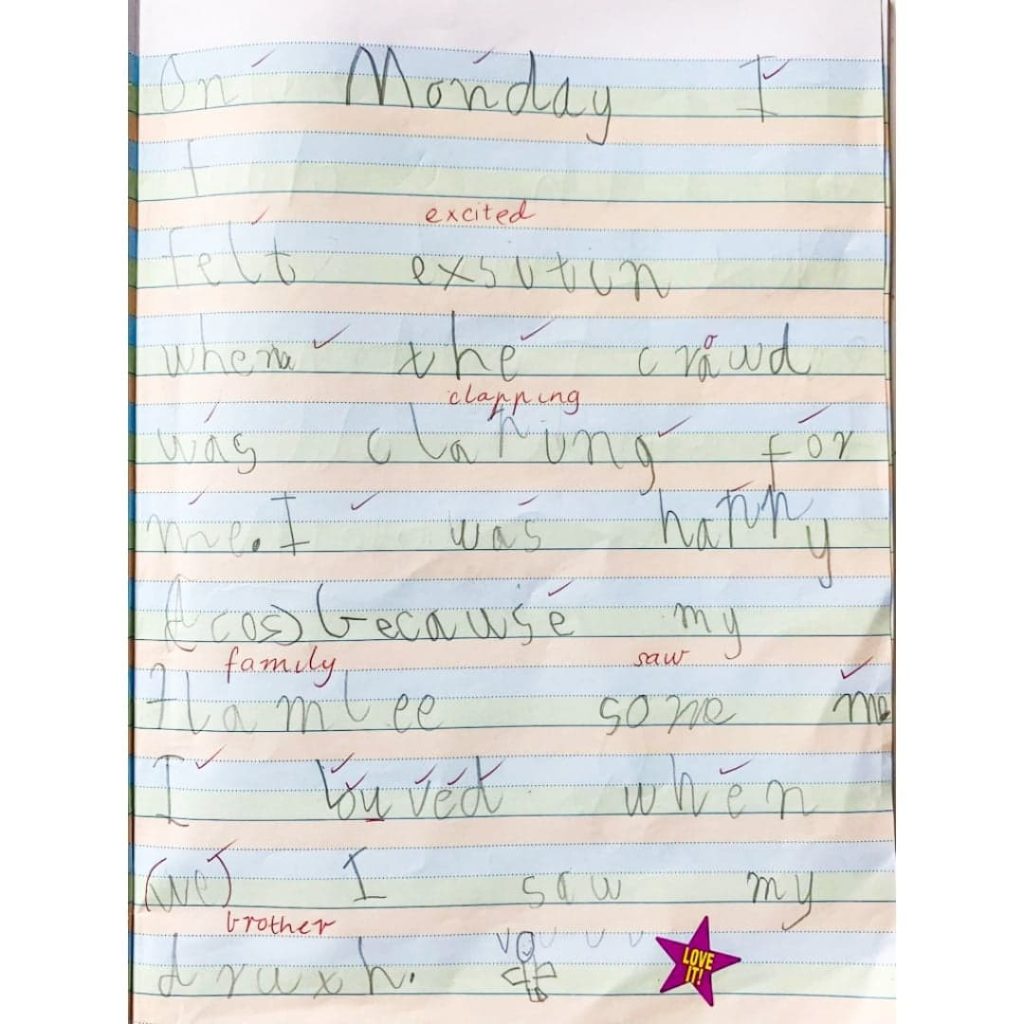 On Monday I
f
excited
felt exsitin
when the crawd
o
clapping
was claping for
me. I was happy
(cos) because my
family saw
Hamlee sone me
I louved when
(we) I saw my
brother
druxh.
LOVE IT!